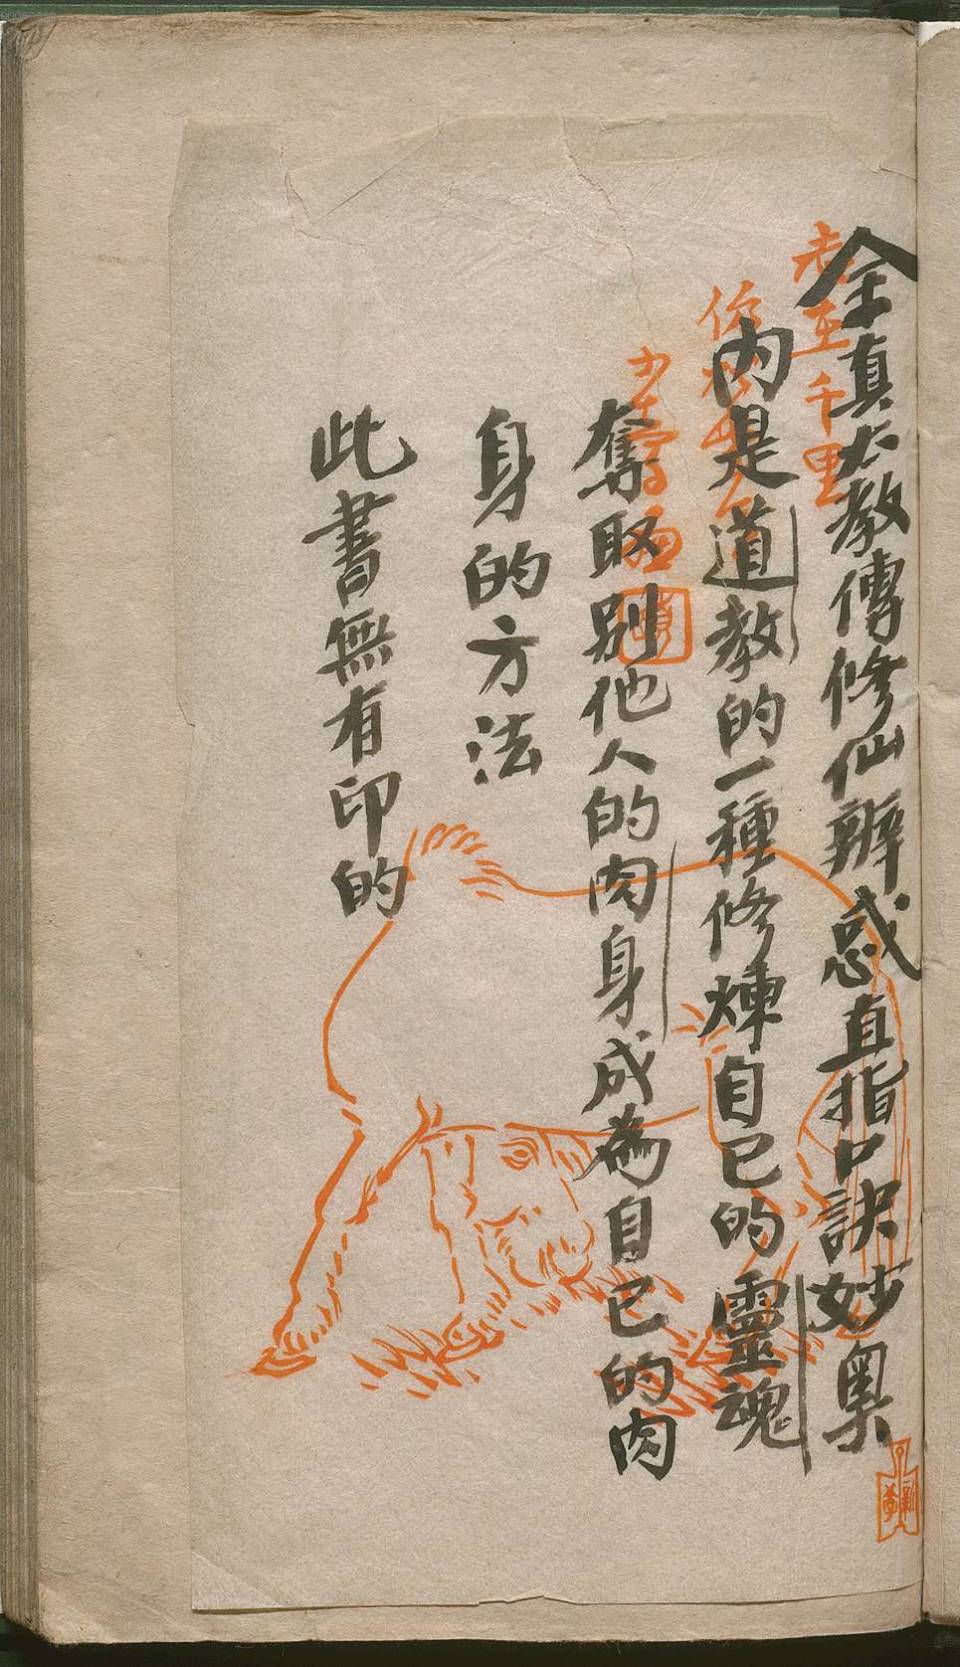 全真大教傳修仙辨惑直指口訣妙奧
內是道教的一種修煉自己的靈魂
奪取別他人的肉身成為自己的肉
身的方法
此書無有印的
老至千里